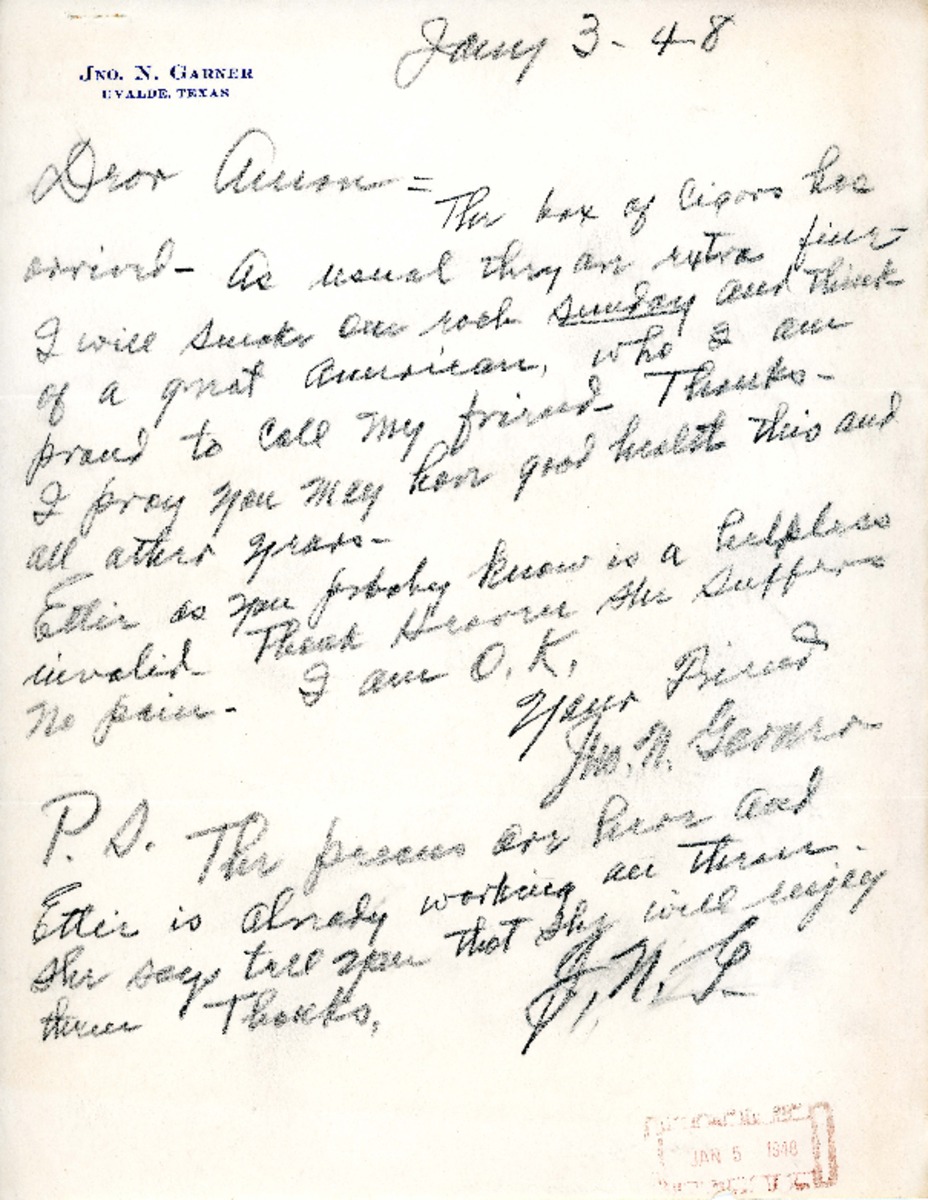 Jany 3-48
JNO. N. GARNER
UVALDE, TEXAS
Dear Amon =
The box of Cigars has
arrived- As usual they are extra fine-
I will smoke one each Sunday and think
of a great American, who I am
proud to call my friend- Thanks-
I pray you may have good health this and
all other years-
Ettie as you probaly know is a helpless
invalid- Thank Heaven she suffers
no pain- I am O.K.
Your Friend
Jno. N. Garner
P.S. The pecans are here and
Ettie is already working on them-
She says tell you that she will enjoy
them Thanks,
J.N.G-
JAN 5 1948